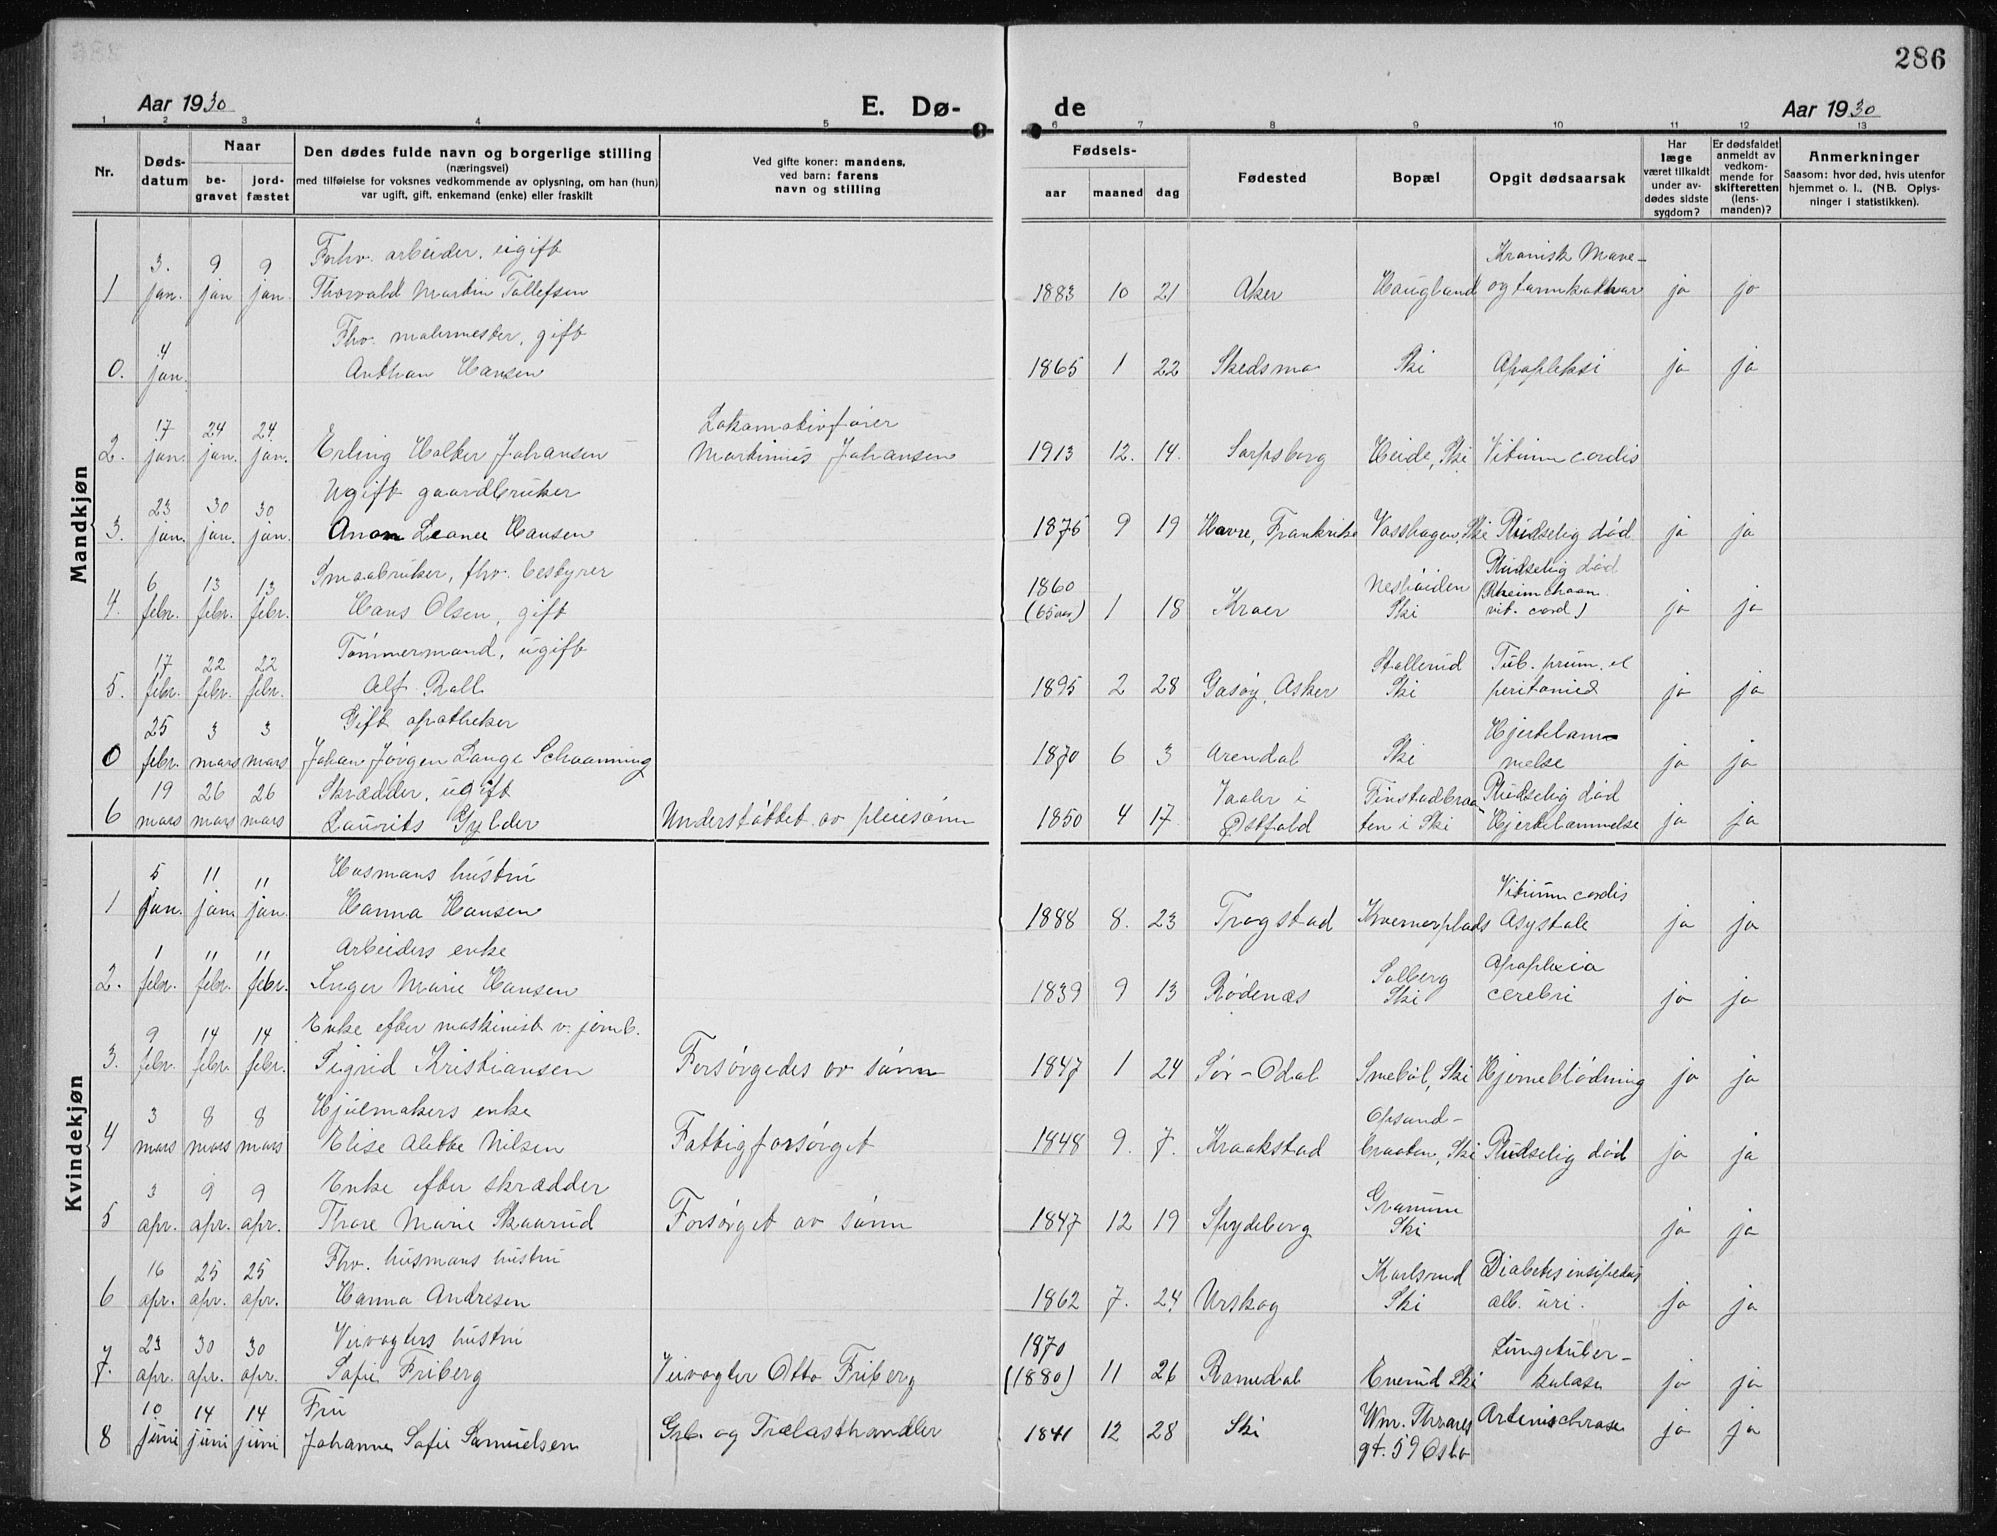 286
Aar 1930 E. Dø- de Aar 1930
1 2 3 4 5 6 7 8 9 10 11 12 13
Nr. Døds-datum Naar begravet jordfæstet Den dødes fulde navn og borgerlige stilling (næringsvei) med tilføielse for voksnes vedkommende av oplysning, om han (hun) var ugift, gift, enkemand (enke) eller fraskilt Ved gifte koner: mandens, ved barn: farens navn og stilling Fødsels- aar maaned dag Fødested Bopæl Opgit dødsaarsak Har læge været tilkaldt under avdødes sidste sygdom? Er dødsfaldet anmeldt av vedkommende for skifteretten (lensmanden)? Anmerkninger Saasom: hvor død, hvis utenfor hjemmet o. l., (NB. Oplysninger i statistikken).
Mandkjøn
1 3. jan. 9 jan 9 jan. Forhv. arbeider, ugift Thorvald Martin Tollefsen 1883 10 21 Aker Haugland Kronisk Mave- og tarmkathar ja ja
0. 4 jan. Fhv. malermester, gift Anthon Hansen 1865 1 22 Skedsmo Ski Apopleksi ja ja
2. 17 jan. 24 jan. 24. jan. Erling Holker Johansen Lokomotivfører Martinius Johansen 1913 12. 14. Sarpsborg Heide, Ski Vitium cordis
3. 23 jan. 30 jan. 30 jan. Ugift gaardbruker Anon Leonee Hansen 1876 9 19 Havre, Frankrike Vasshagen, Ski Pludselig død ja ja
4. 6 febr. 13 febr. 13 febr. Smaabruker, fhv. bestyrer Hans Olsen, gift 1860 (65 aar) 1 18 Kroer Neshøiden Ski Pludselig død vit. cord) ja ja
5. 17 febr. 22 febr. 22 febr. Tømmermand, ugift Alf Roll 1895 2 28 Gasøy, Asker Stallerud Ski Tub. pum. et peritonied ja ja
0 25 febr. 3 mars 3 mars Gift apotheker Johan Jörgen Lange Schaanning 1870 6 3 Arendal Ski Hjertelammelse ja ja
6 19 mars 26 mars 26 mars Skrædder, ugift Laurits Gylder Understøttet av pleiesønn 1850 4 17. Vaaler i Østfold Finstadbraaten i Ski Pludselig død Hjertelammelse ja ja
Kvindekjøn
1 5 jan. 11 jan. 11 jan. Husmans hustru Hanna Hansen 1888 8. 23 Trøgstad Kvernerplads Vitium cordis Asystole ja ja
2. 1 febr. 11 febr. 11 febr. Arbeiders enke Inger Marie Hansen 1839 9 13 Rødenæs Solberg Ski Apoplexia cerebri ja ja
3. 9 febr. 14 febr. 14 febr. Enke efter maskinist v. jernb. Sigrid Kristiansen Forsørgedes av sønn 1847 1 24 Sør-Odal Smebøl, Ski Hjerneblødning ja ja
4 3 mars 8 mars 8 mars Hjulmakers enke Elise Alette Nilsen Fattigforsørget 1848 9. 7. Kraakstad Opsandbraaten, Ski Pludselig død ja ja
5 3 apr. 9 apr. 9 apr. Enke efter skrædder Thore Marie Skaarud Forsørget av sønn 1847 12 19 Spydeberg Granum Ski ja ja
6 16 apr. 25 apr. 25 apr. Fhv. husmans hustru Hanna Andresen 1862 7. 24 Urskog Karlsrud Ski Diabetes insipedus alb. uri. ja ja
7. 23 apr. 30 apr. 30 apr. Veivogters hustru Sofie Friberg Veivogter Otto Friberg 1870 (1880) 11 26 Romedal Enerud Ski Lungetuberkulose ja ja
8 10 juni 14 juni 14 juni Fru Johanne Sofie Samuelsen Grb. og Trælasthandler 1841 12 28 Ski Wm. Thranes gt. 59 Oslo ja ja